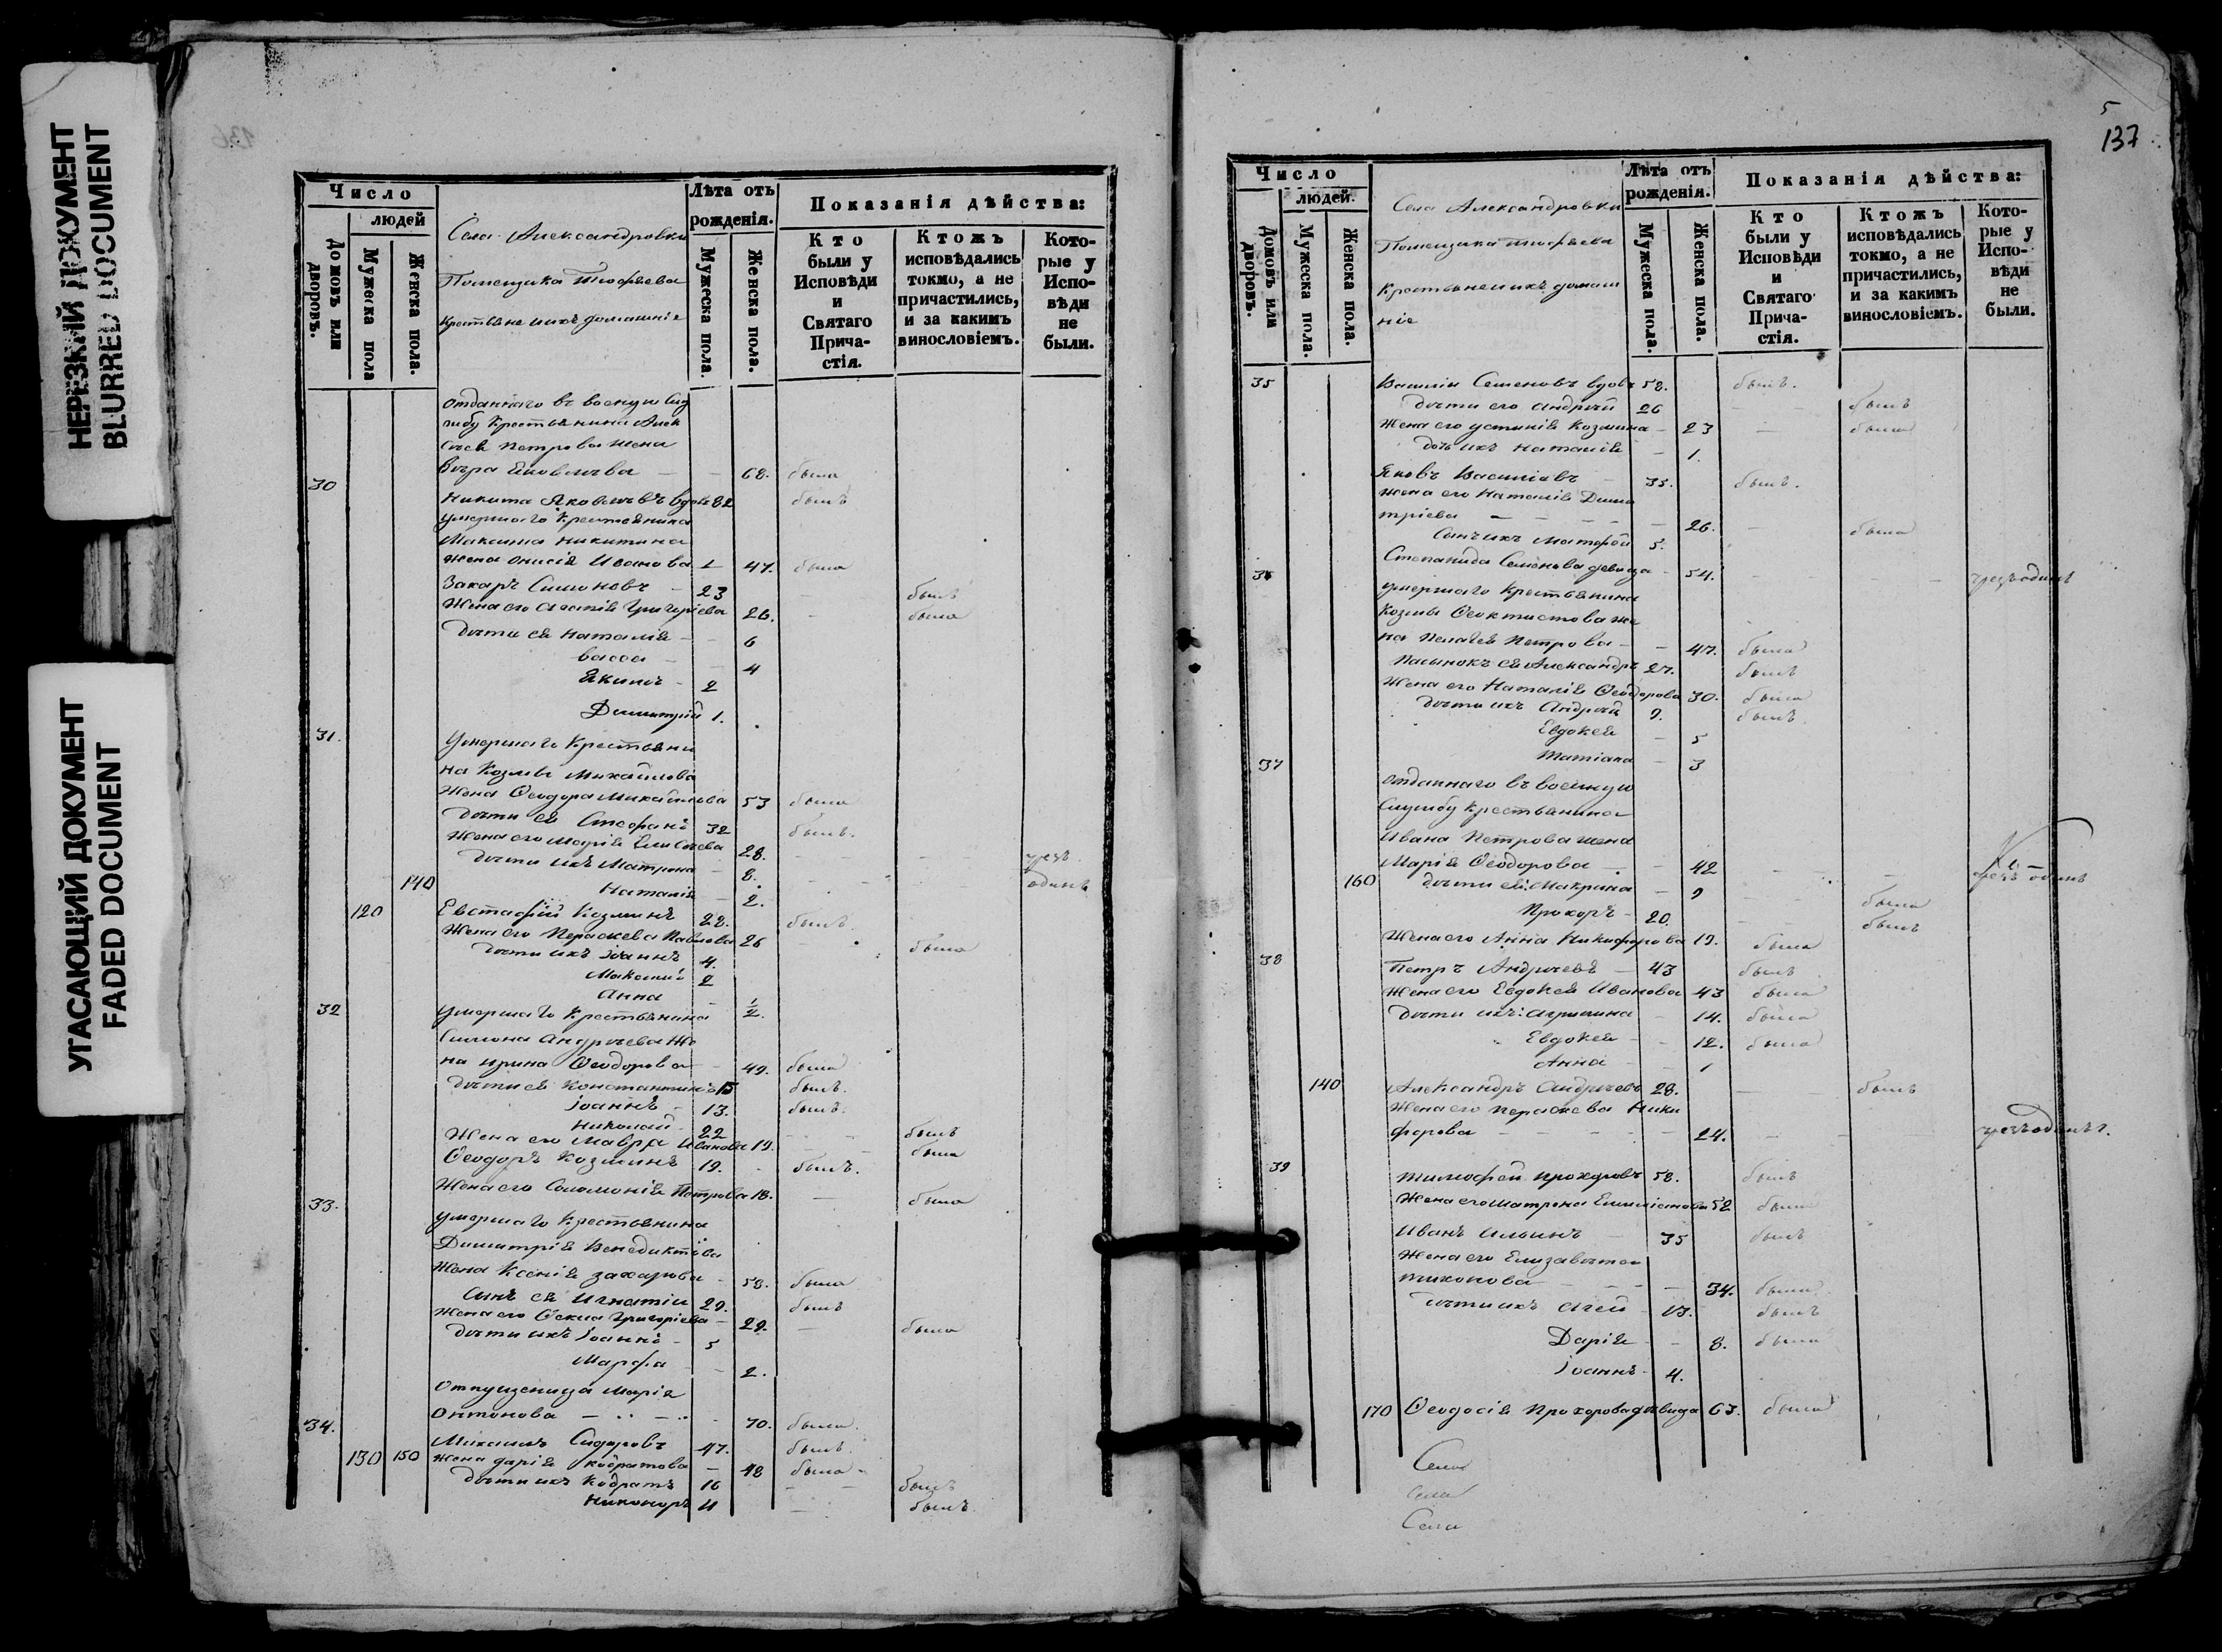 НЕРЕЗКИЙ ДОКУМЕНТ
BLURRED DOCUMENT
УГАСАЮЩИЙ ДОКУМЕНТ
FADED DOCUMENT
136
Число
людей
Домовъ или дворовъ.
Мужеска пола
Женска пола.
Села Александровки
Помещика
Крестьяне ихъ домашніе
Лѣта отъ рожденія.
Мужеска пола.
Женска пола.
Показанія дѣйства:
Кто были у Исповѣди и Святаго Причастія.
Ктожъ исповѣдались токмо, а не причастились, и за какимъ винословіемъ.
Которые у Исповѣди не были.
отданнаго въ военную слу
жбу Крестьянина Алек
сѣя Петрова жена
Вѣра Яковлева 68. была
30
Никита Яковлевъ вдовъ 82 былъ
умершаго Крестьянина
Максима Никитина
жена Онисія Иванова 47. была
Захаръ Симоновъ 23 былъ
Жена его Агапія Григоріева 26. была
дѣти ея Наталія 6
Васса 4
Якимъ 2
Димитрій 1.
31.
Умершаго Крестьяни
на Козмы Михайлова
Жена Ѳеодора Михайлова 53 была
дѣти ея Стефанъ 32 былъ.
Жена его Марія Елисеева 28. чрезъ
дѣти ихъ Матрона 8. одинъ
140 Наталія 2.
120 Евстафій Козминъ 22. былъ.
Жена его Параскева Павлова 26 была
дѣти ихъ Іоаннъ 4.
Максимъ 2
Анна 1/2.
32 умершаго Крестьянина
Симона Андреева же
на Ирина Ѳеодорова 49. была
дѣти ея Константинъ 15 былъ.
Іоаннъ 13. былъ.
Николай 22 былъ
Жена его Мавра Иванова 19. была
Ѳеодоръ Козминъ 19. былъ.
Жена его Соломонія Петрова 18. была
33.
умершаго Крестьянина
Димитрія Венедиктова
Жена Ксенія Захарова 58. была
сынъ ея Игнатій 29. былъ
Жена его Ѳекла Григоріева 29. была
дѣти ихъ Іоаннъ 5
Марфа 2.
Отпущеница Марія
Антонова 70. была.
34.
130 150 Михаилъ Сидоровъ 47. былъ.
Жена Дарія Кодратова 48 была
дѣти ихъ Кодратъ 16 былъ
Никоноръ 11 былъ.
5
137
Число
людей.
Домовъ или дворовъ.
Мужеска пола.
Женска пола.
Села Александровки
Помещика
Крестьяне ихъ домаш
ніе
Лѣта отъ рожденія.
Мужеска пола.
Женска пола.
Показанія дѣйства:
Кто были у Исповѣди и Святаго Причастія.
Ктожъ исповѣдались токмо, а не причастились, и за какимъ винословіемъ.
Которые у Исповѣди не были.
35 Василій Семеновъ вдовъ 58. былъ.
дѣти его Андрей 26 былъ
Жена его Устинія Козмина 23 была
дочь ихъ Наталія 1.
Яковъ Василіевъ 35. былъ.
жена его Наталія Дими
тріева 26. была
Сынъ ихъ Матфей 5.
Степанида Семенова девица 54. чрезъ одинъ
36 умершаго Крестьянина
Козмы Ѳеоктистова же
на Пелагея Петрова 47. была
Пасынокъ ея Александръ 27. былъ
Жена его Наталія Ѳеодорова 30. была
дѣти ихъ Андрей 9. былъ.
Евдокея 5
Матіана 3
37
отданнаго въ военную
службу Крестьянина
Ивана Петрова жена
Марія Ѳеодорова 42 чрезъ одинъ
160 дѣти ея: Макрина 9 была
Прохоръ 20. былъ
Жена его Анна Никифорова 19. была
38
Петръ Андреевъ 43 былъ
Жена его Евдокея Иванова 43 была
дѣти ихъ: Агрипина 14. была
Евдокея 12. была
Анна 1
140 Александръ Андреевъ 28. былъ
Жена его Параскева Ники
форова 24. чрезъ одинъ.
39
Тимофей Прохоровъ 58. былъ
Жена его Матрона Емиліанова 52 была
Иванъ Ильинъ 35 былъ
Жена его Елизавета
Тихонова 34. была
дѣти ихъ Агей 13. былъ
Дарія 8. была
Іоаннъ 4.
170 Ѳеодосія Прохорова девица 63. была
Села
Села
Села